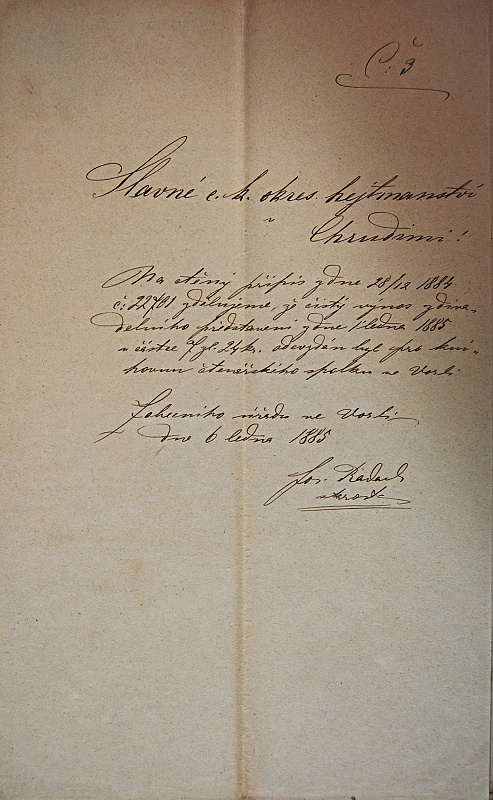 Č: 3
Slavné c. k. okres. hejtmanství
v
Chrudimi!
Na ctěný přípis z dne 28/12 1884
č: 22701 zdělujeme, že čistý výnos z diva-
delního představení z dne 1 ledna 1885
v částce 7 zl. 24 kr. odevzdán byl pro kni-
hovnu čtenářského spolku ve Vorli
Z obecního úřadu ve Vorli
dne 6 ledna 1885
Jos. Kadach
starosta